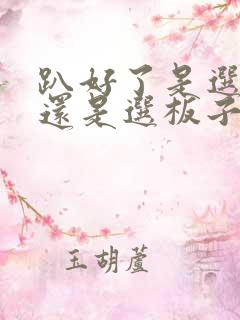 趴好了是選
還是選板子
玉胡蘆